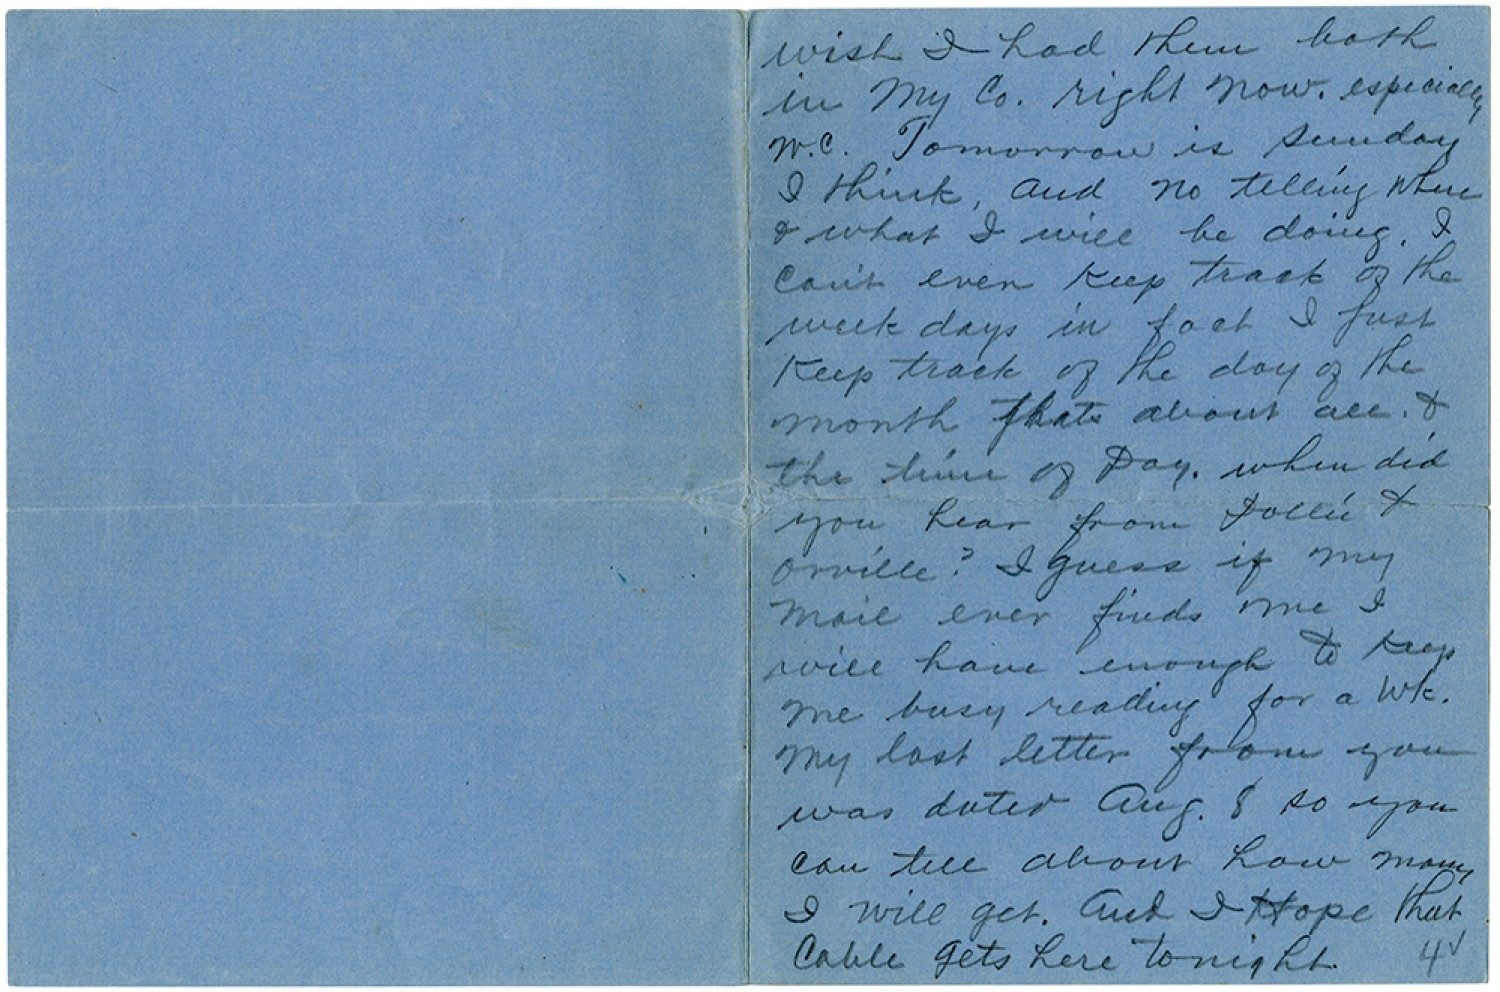 wish I had them both
in My Co. right now. especially
W.C. Tomorrow is Sunday
I think, and no telling where
& what I will be doing. I
can't even keep track of the
week days in fact I just
keep track of the day of the
month thats about all. &
the time of Day. when did
you hear from Dollie &
Orville? I guess if my
mail ever finds me I
will have enough to keep
me busy reading for a wk.
My last letter from you
was dated Aug. 8 so you
can tell about how many
I will get. And I Hope that
Cable gets here tonight.
4√